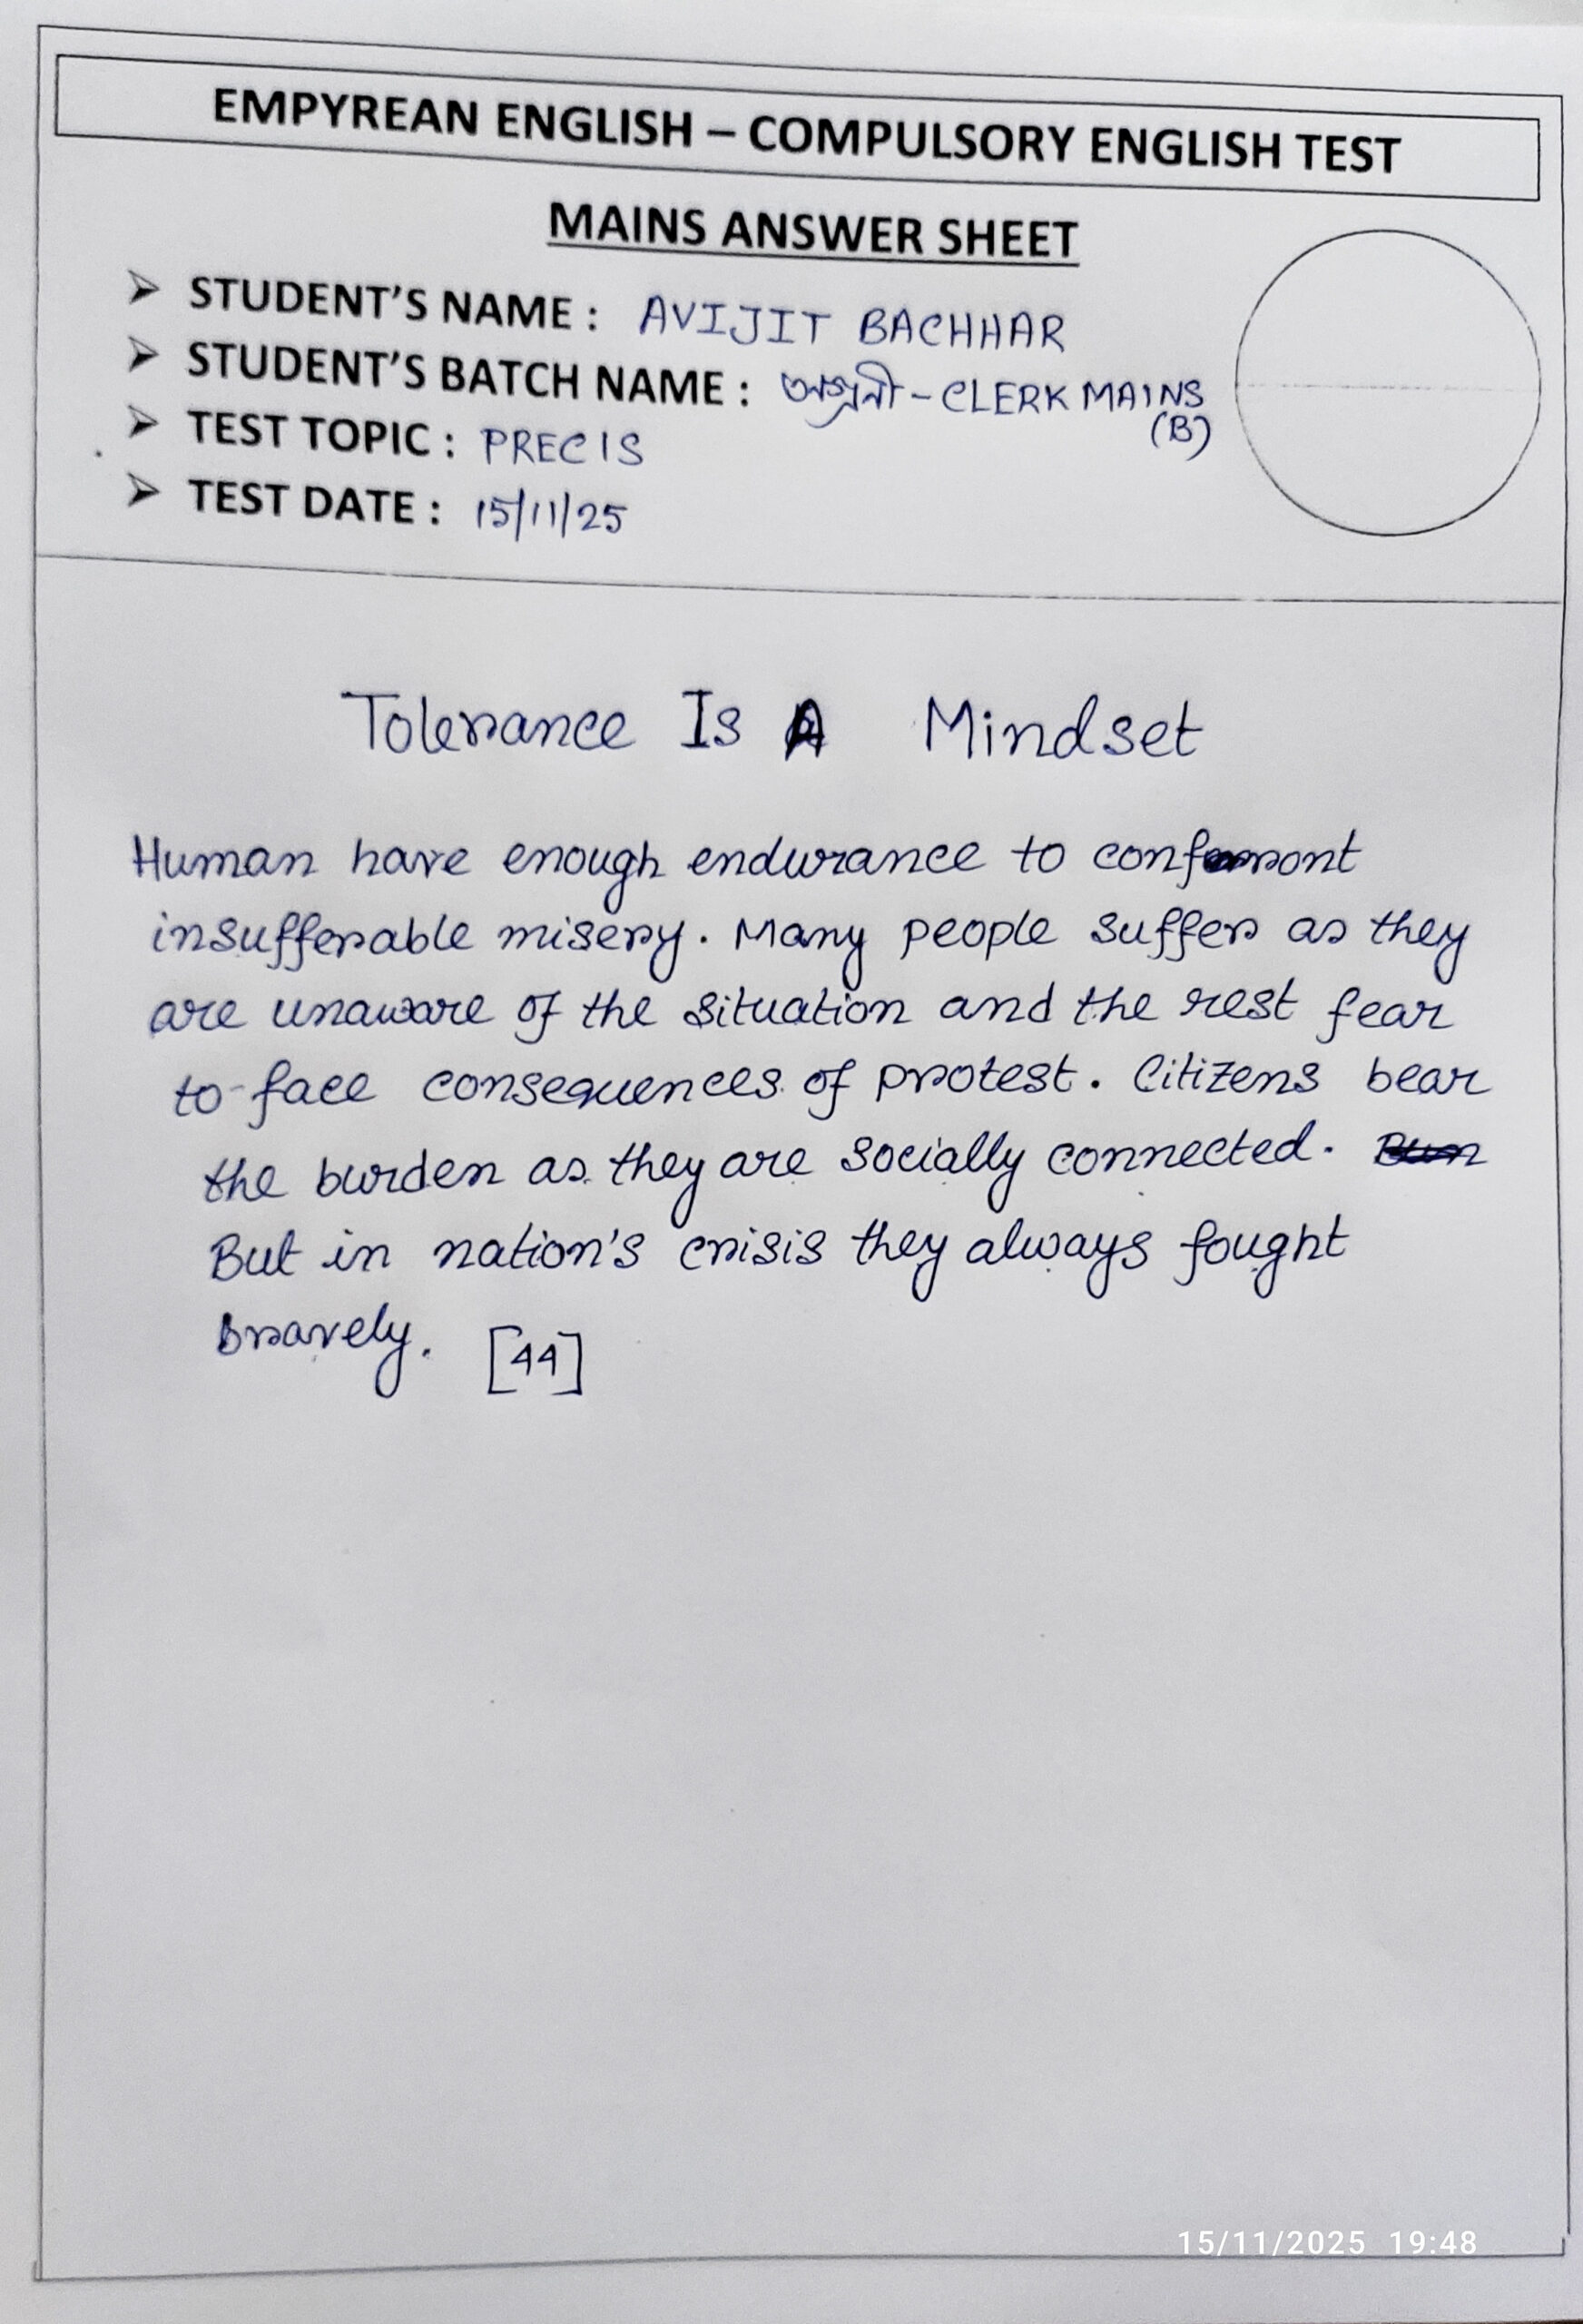 EMPYREAN ENGLISH – COMPULSORY ENGLISH TEST
MAINS ANSWER SHEET
➢ STUDENT'S NAME : AVIJIT BACHHAR
➢ STUDENT'S BATCH NAME : অগ্রনী - CLERK MAINS
(B)
➢ TEST TOPIC : PRECIS
➢ TEST DATE : 15/11/25
Tolerance Is A Mindset
Human have enough endurance to
insufferable misery. Many people suffer as they
are unaware of the situation and the rest fear
to face consequences of protest. Citizens bear
the burden as they are socially connected.
But in nation's crisis they always fought
bravely. [44]
15/11/2025 19:48